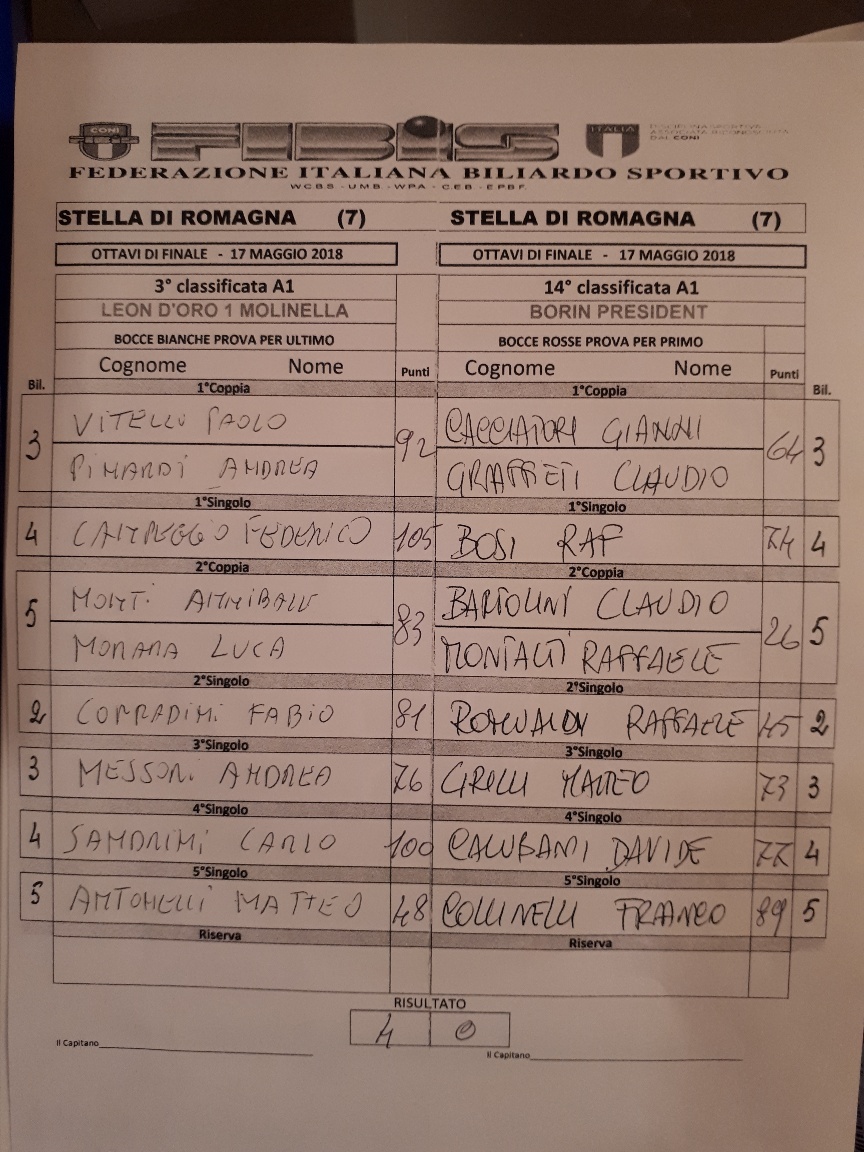 CONI
FIBiS
ITALIA
DISCIPLINA SPORTIVA
ASSOCIATA RICONOSCIUTA
DAL CONI
FEDERAZIONE ITALIANA BILIARDO SPORTIVO
W.C.B.S - U.M.B - W.P.A - C.E.B - E.P.B.F.
STELLA DI ROMAGNA (7) STELLA DI ROMAGNA (7)
OTTAVI DI FINALE - 17 MAGGIO 2018 OTTAVI DI FINALE - 17 MAGGIO 2018
3° classificata A1 14° classificata A1
LEON D'ORO 1 MOLINELLA BORIN PRESIDENT
BOCCE BIANCHE PROVA PER ULTIMO BOCCE ROSSE PROVA PER PRIMO
Cognome Nome Punti Cognome Nome Punti
Bil. 1°Coppia 1°Coppia Bil.
3 VITELLO PAOLO 92 CACCIATORI GIANNI 64 3
ANDREA CLAUDIO
1°Singolo 1°Singolo
4 CAMPEGGIO FEDERICO 105 BOSI RAF 74 4
2°Coppia 2°Coppia
5 MONTI ANNIBALE 83 BARTOLINI CLAUDIO 26 5
MORARA LUCA MONTALTI RAFFAELE
2°Singolo 2°Singolo
2 CORRADINI FABIO 81 ROMUALDI RAFFAELE 45 2
3°Singolo 3°Singolo
3 MESSORI ANDREA 76 CIRELLI MATTEO 73 3
4°Singolo 4°Singolo
4 SANDRINI CARLO 100 DAVIDE 77 4
5°Singolo 5°Singolo
5 ANTONELLI MATTEO 48 COLLINELLI FRANCO 89 5
Riserva Riserva
RISULTATO
4 0
Il Capitano Il Capitano